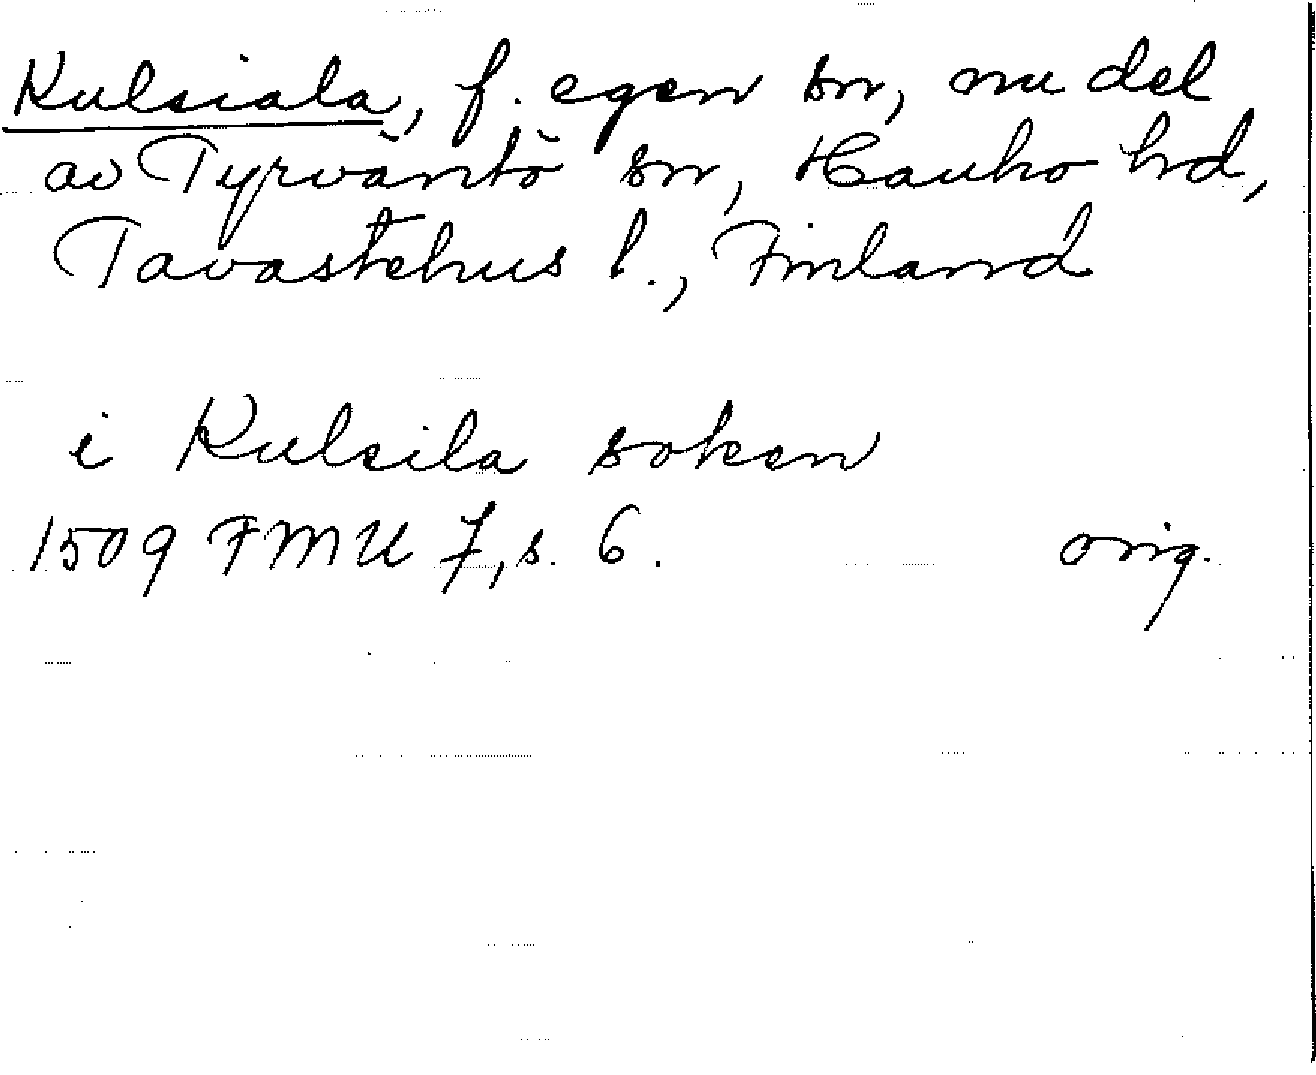 Kulsiala, f. egen sn, nu del
av Tyrväntö sn, Hauho hd,
Tavastehus l., Finland
i Kulsila soken
1509 FMU 7, s. 6. orig.